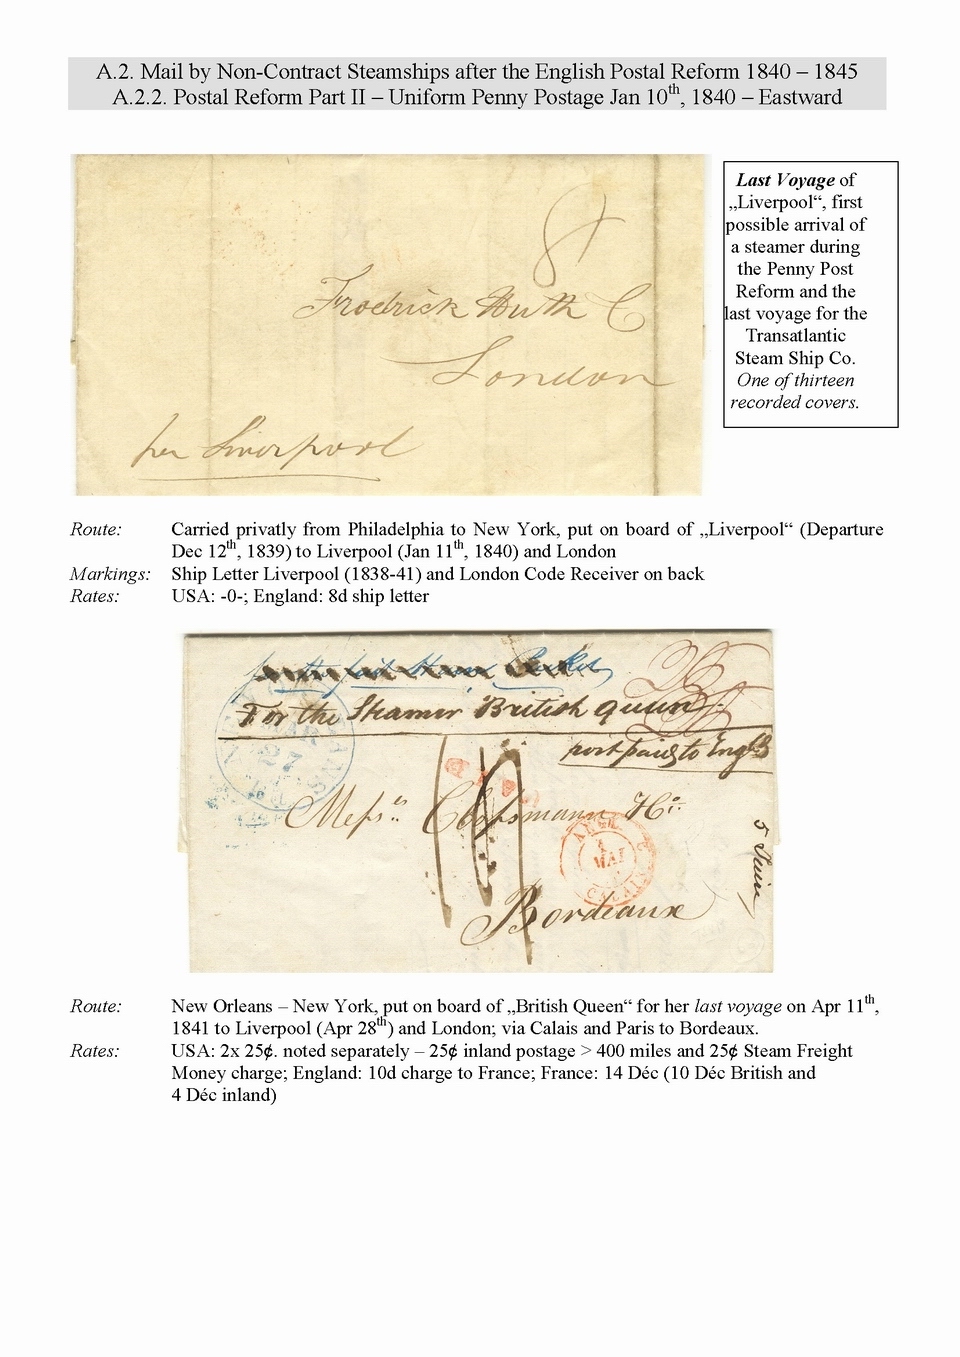 A.2. Mail by Non-Contract Steamships after the English Postal Reform 1840 – 1845
A.2.2. Postal Reform Part II – Uniform Penny Postage Jan 10th, 1840 – Eastward
8
Frederick Huth C
London
per Liverpool
Last Voyage of
„Liverpool“, first
possible arrival of
a steamer during
the Penny Post
Reform and the
last voyage for the
Transatlantic
Steam Ship Co.
One of thirteen
recorded covers.
Route: Carried privatly from Philadelphia to New York, put on board of „Liverpool“ (Departure
Dec 12th, 1839) to Liverpool (Jan 11th, 1840) and London
Markings: Ship Letter Liverpool (1838-41) and London Code Receiver on back
Rates: USA: -0-; England: 8d ship letter
For the Steamer British Queen
post paid to Engld
PAID
MAR
27
Messrs
Bordeaux
ANGL.
MAI
CALAIS
5 Juin
Route: New Orleans – New York, put on board of „British Queen“ for her last voyage on Apr 11th,
1841 to Liverpool (Apr 28th) and London; via Calais and Paris to Bordeaux.
Rates: USA: 2x 25¢. noted separately – 25¢ inland postage > 400 miles and 25¢ Steam Freight
Money charge; England: 10d charge to France; France: 14 Déc (10 Déc British and
4 Déc inland)